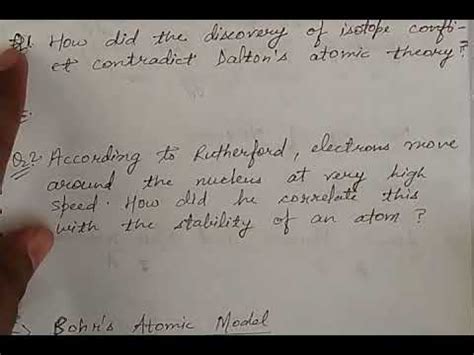 Q1. How did the discovery of isotope confli-
ct contradict Dalton's atomic theory?
Q2. According to Rutherford, electrons move
around the nucleus at very high
speed. How did he correlate this
with the stability of an atom?
Bohr's Atomic Model